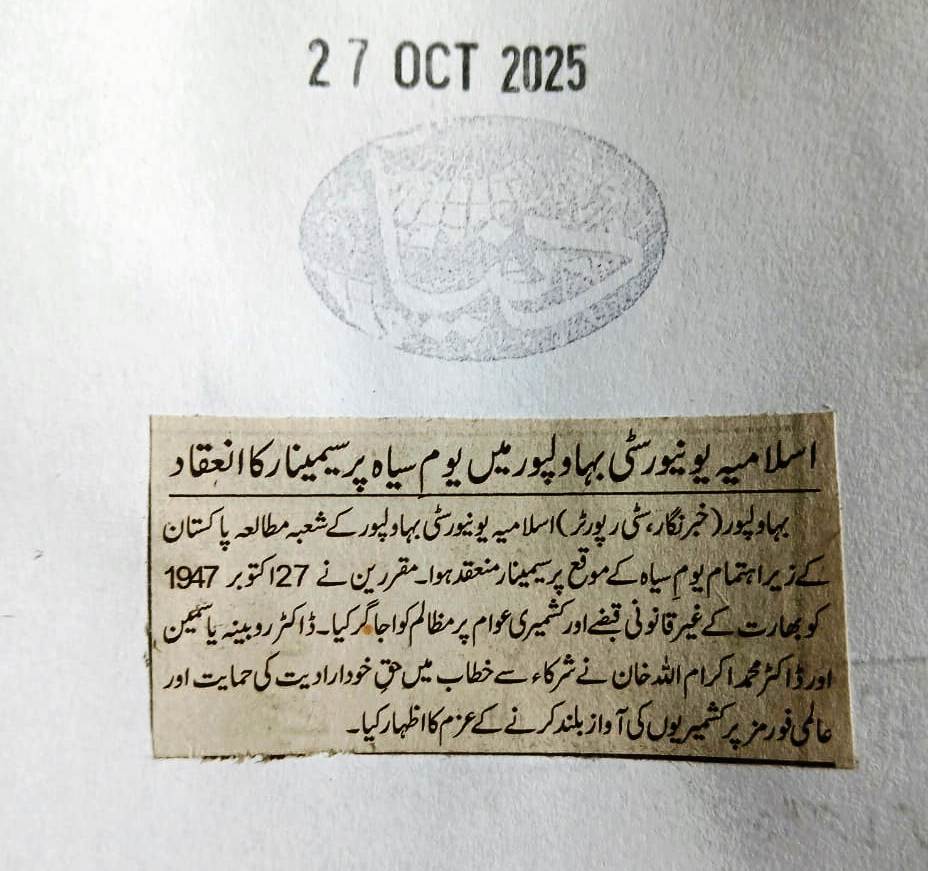 27 OCT 2025
دنیا
اسلامیہ یونیورسٹی بہاولپور میں یوم سیاہ پر سیمینار کا انعقاد
بہاولپور (خبرنگار، سٹی رپورٹر) اسلامیہ یونیورسٹی بہاولپور کے شعبہ مطالعہ پاکستان
کے زیر اہتمام یومِ سیاہ کے موقع پر سیمینار منعقد ہوا۔ مقررین نے 27 اکتوبر 1947
کو بھارت کے غیر قانونی قبضے اور کشمیری عوام پر مظالم کو اجاگر کیا۔ ڈاکٹر روبینہ یاسمین
اور ڈاکٹر محمد اکرام اللہ خان نے شرکاء سے خطاب میں حقِ خودارادیت کی حمایت اور
عالمی فورمز پر کشمیریوں کی آواز بلند کرنے کے عزم کا اظہار کیا۔